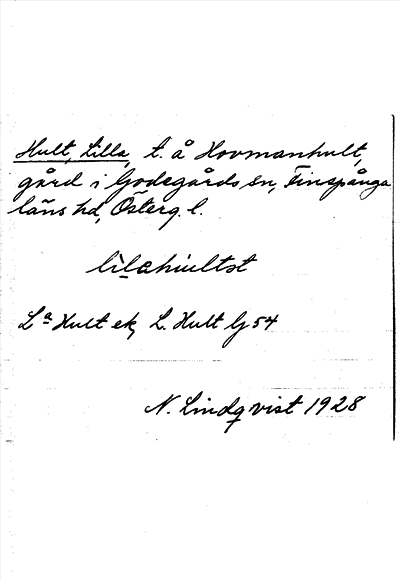 Hult, Lilla, t. å Hovmanhult,
gård i Godegårds sn, Finspånga
läns hd, Österg. l.
lilahultst
Lª Hult ek, L. Hult lj 54
N. Lindqvist 1928